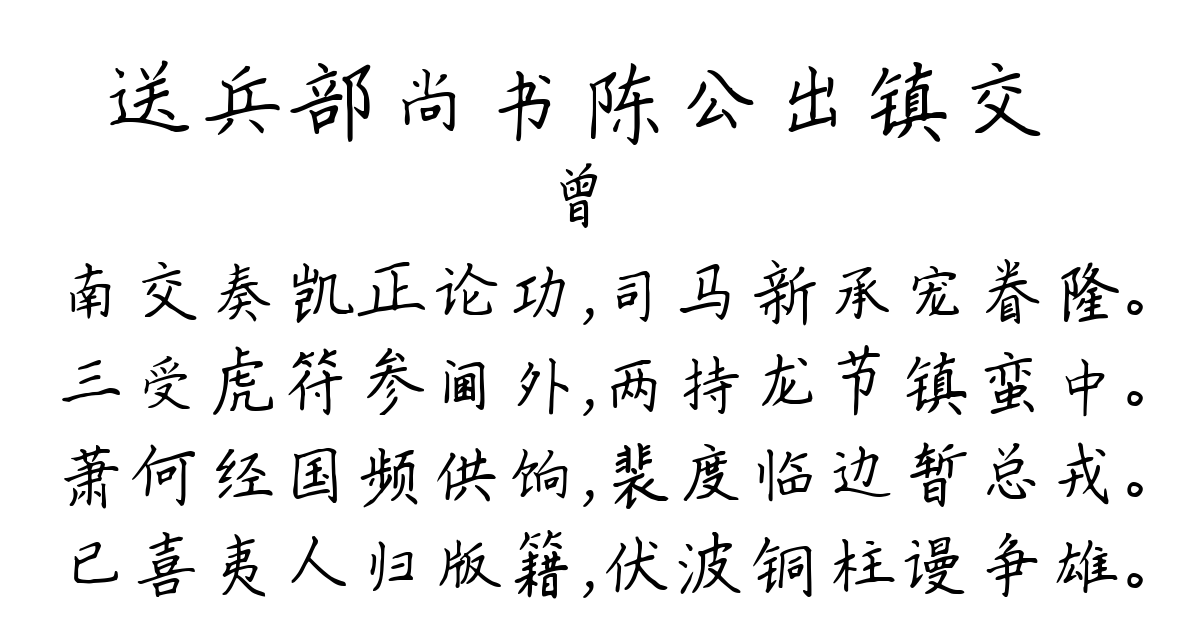 送兵部尚书陈公出镇交
曾
南交奏凯正论功,司马新承宠眷隆。
三受虎符参阃外,两持龙节镇蛮中。
萧何经国频供饷,裴度临边暂总戎。
已喜夷人归版籍,伏波铜柱谩争雄。